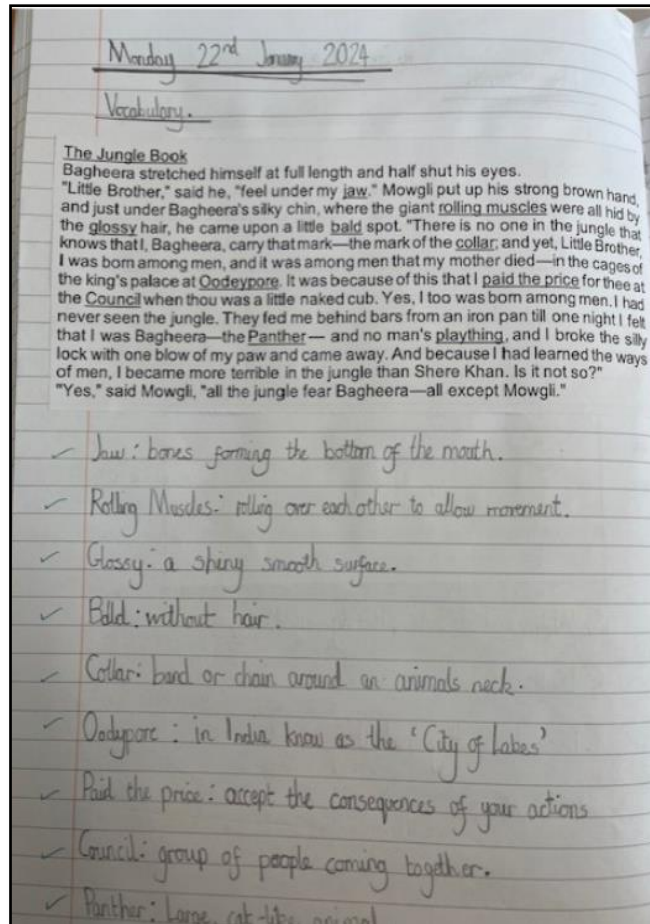 Monday 22nd January 2024
Vocabulary.
The Jungle Book
Bagheera stretched himself at full length and half shut his eyes.
"Little Brother," said he, "feel under my jaw." Mowgli put up his strong brown hand,
and just under Bagheera's silky chin, where the giant rolling muscles were all hid by
the glossy hair, he came upon a little bald spot. "There is no one in the jungle that
knows that I, Bagheera, carry that mark—the mark of the collar; and yet, Little Brother,
I was born among men, and it was among men that my mother died—in the cages of
the king's palace at Oodeypore. It was because of this that I paid the price for thee at
the Council when thou was a little naked cub. Yes, I too was born among men. I had
never seen the jungle. They fed me behind bars from an iron pan till one night I felt
that I was Bagheera—the Panther— and no man's plaything, and I broke the silly
lock with one blow of my paw and came away. And because I had learned the ways
of men, I became more terrible in the jungle than Shere Khan. Is it not so?"
"Yes," said Mowgli, "all the jungle fear Bagheera—all except Mowgli."
Jaw: bones forming the bottom of the mouth.
Rolling Muscles: rolling over each other to allow movement.
Glossy: a shiny smooth surface.
Bald: without hair.
Collar: band or chain around an animals neck.
Oodypore: in India know as the 'City of Lakes'
Paid the price: accept the consequences of your actions
Council: group of people coming together.
Panther: Large, cat-like animal